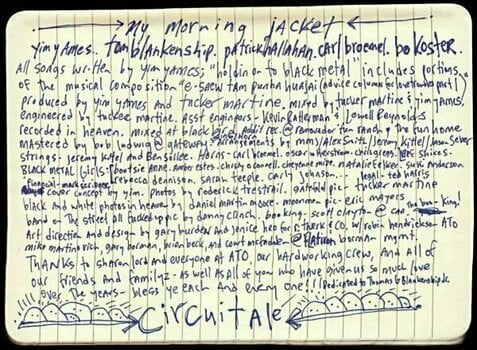 My morning jacket
yim yames. tom blankenship. patrick hallahan. carl broemel. bo koster.
All songs written by yim yames; "holdin on to black metal" includes portions
of the musical composition "e-saew tam punha huajai (advice column for love troubles part 1)
produced by yim yames and tucker martine. mixed by tucker martine & yim yames.
engineered by tucker martine. Asst engineers - Kevin Ratterman & Lowell Reynolds
recorded in heaven. mixed at black bird. Addil rec. @ removador fun ranch & the fun home
mastered by bob ludwig @ gateway. arrangements by mmj/Alex Smith/Jeremy Kittel/Jason Seber
strings- Jeremy Kittel and Ben Sollee. Horns- carl broemel,
BLACK METAL Girls:
rebecca dennison. sarah teeple. carly johnson... legal- ted harris
cover concept by yim. photos by roderick trestrail. gatefold pic - tucker martine
black and white photos in heaven by daniel martin moore. moonman pic- eric mayers
band on the street all fucked up pic by danny clinch. booking- scott clayton @ caa. the boo-king!
Art direction and design by gary burden and jenice heo for R. Twerk & CO. w/ robin hendrickson ATO
mike martinovich, gary borman, brian beck, and court mcfadden @ flatiron borman mgmt.
THANKS to sharon lord and everyone at ATO, our hard working crew, and all of
our friends and familyz- as well as all of you who have given us so much love
over the years- bless ye each and every one!!! Dedicated to Thomas G. Blankenship Sr.
Circuital